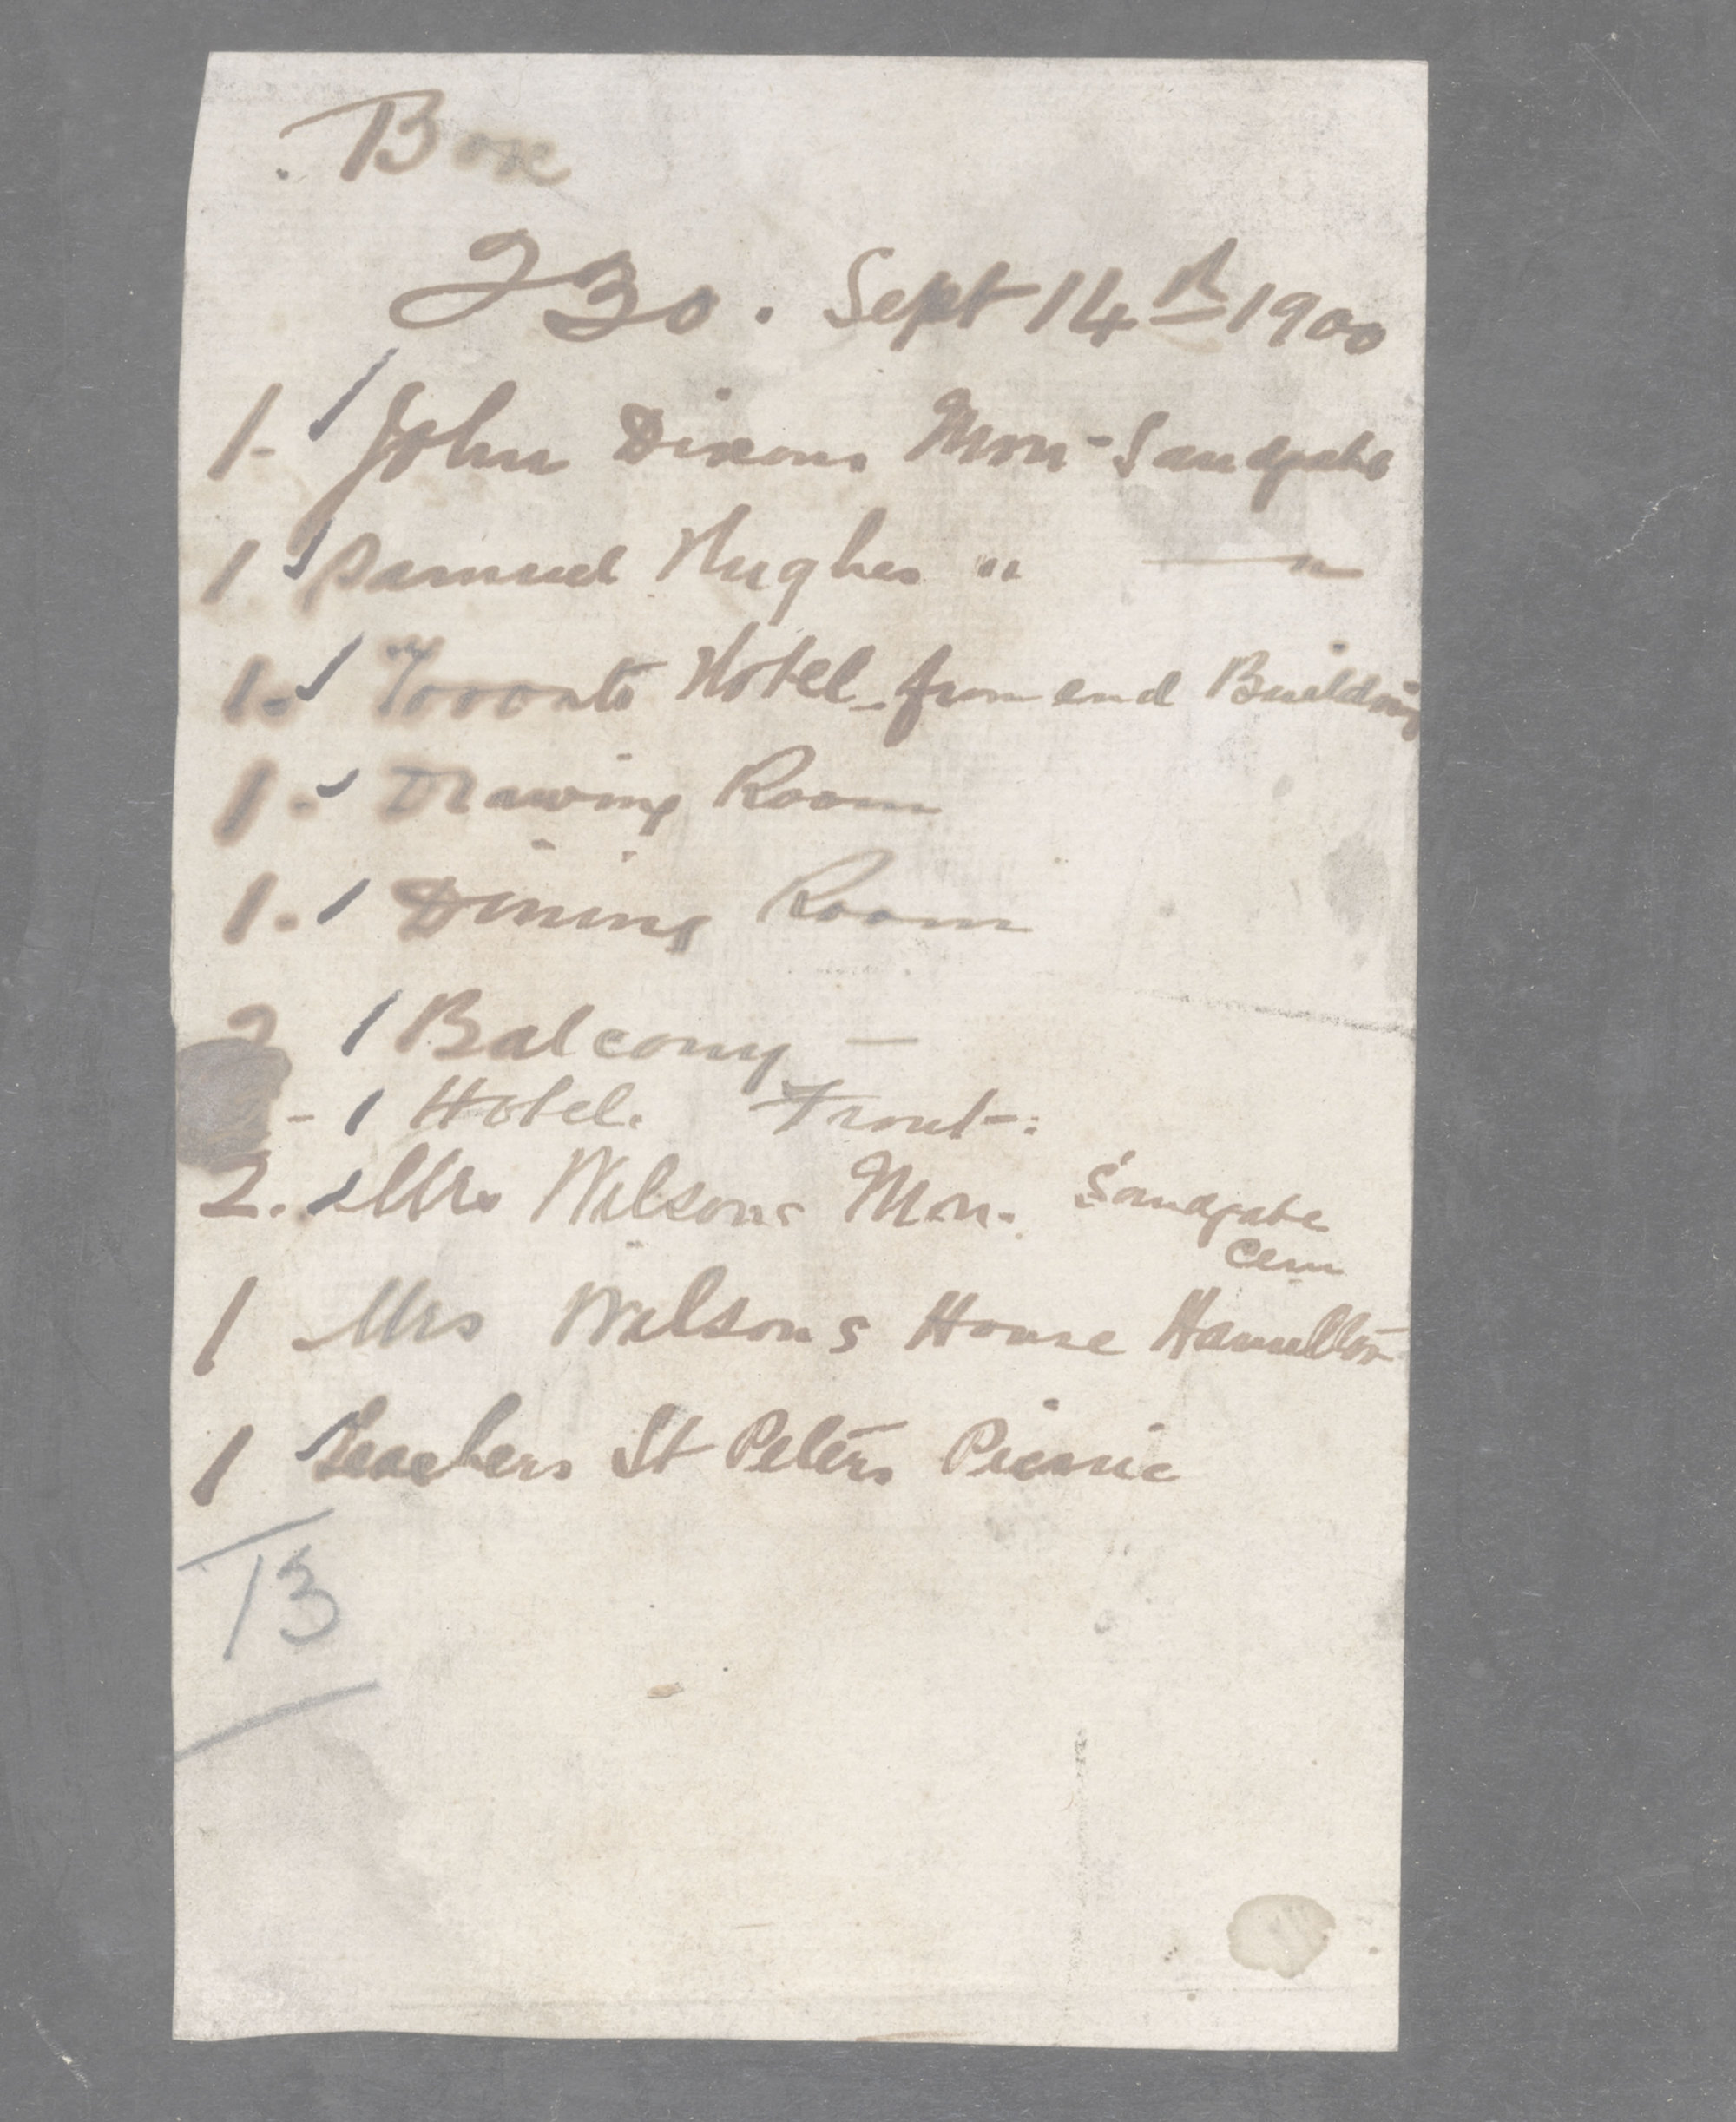 Box
230. Sept 14th 1900
1- John Dixons Mon- Sandgate
1 Samuel Hughes " — "
1. Toronto Hotel - from end Building
1. Drawing Room
1. Dining Room
2 Balcony —
- Hotel. Front:
2. Mrs Wilsons Mon. Sandgate
Cem
1 Mrs Wilsons House Hamilton
1 Teachers St Peters Picnic
13